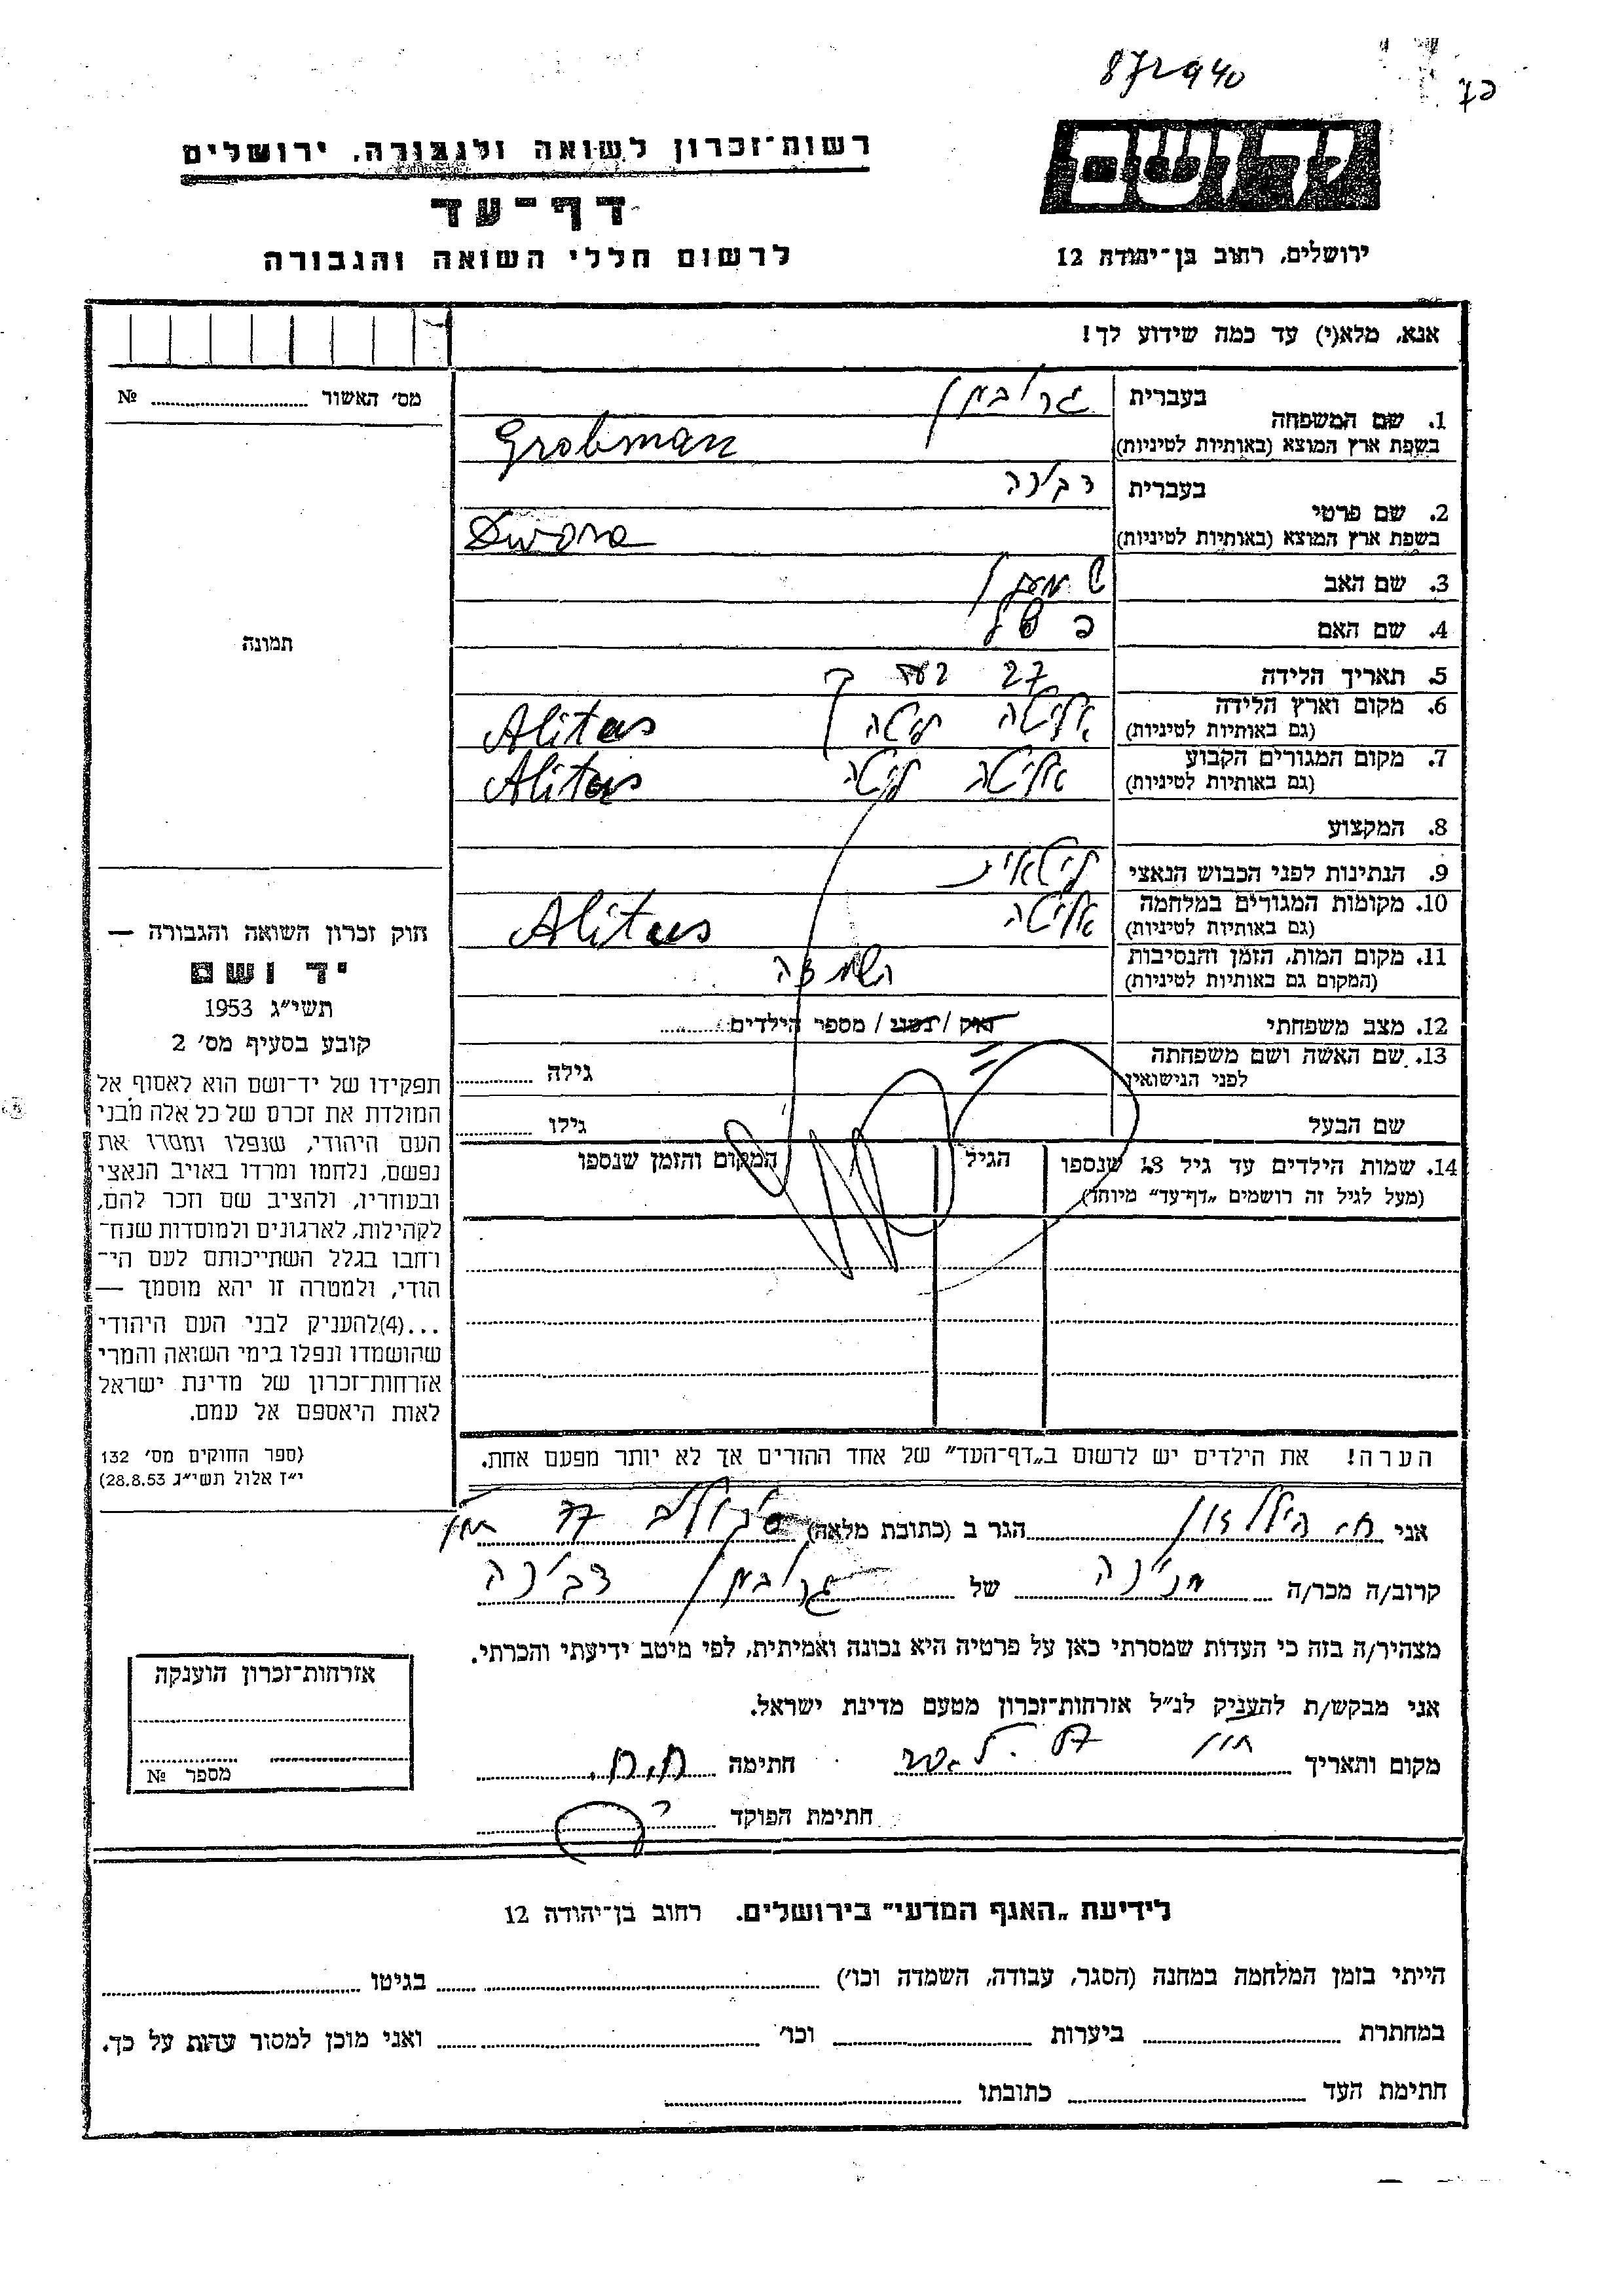 872940
רשות־זכרון לשואה ולגבורה, ירושלים
דף־עד
לרשום חללי השואה והגבורה
יד ושם
ירושלים, רחוב בן־יהודה 12
אנא, מלא(י) עד כמה שידוע לך!
מס׳ האשור № 
תמונה
1. שם המשפחה בעברית גרובמן
בשפת ארץ המוצא (באותיות לטיניות) Grobman
2. שם פרטי בעברית דבורה
בשפת ארץ המוצא (באותיות לטיניות) Dwora
3. שם האב שמעון
4. שם האם
5. תאריך הלידה 27
6. מקום וארץ הלידה אליטה ליטה Alitus
(גם באותיות לטיניות)
7. מקום המגורים הקבוע אליטה ליטה Alitus
(גם באותיות לטיניות)
8. המקצוע
9. הנתינות לפני הכבוש הנאצי ליטאית
10. מקומות המגורים במלחמה אליטה Alitus
(גם באותיות לטיניות)
11. מקום המות, הזמן והנסיבות השמדה
(המקום גם באותיות לטיניות)
12. מצב משפחתי רווק / נשוי / מספר הילדים
13. שם האשה ושם משפחתה גילה
לפני הנישואין
שם הבעל גילו
14. שמות הילדים עד גיל 18 שנספו הגיל המקום והזמן שנספו
(מעל לגיל זה רושמים „דף־עד” מיוחד)
הערה! את הילדים יש לרשום ב„דף־העד” של אחד ההורים אך לא יותר מפעם אחת.
חוק זכרון השואה והגבורה —
יד ושם
תשי״ג 1953
קובע בסעיף מס׳ 2
תפקידו של יד־ושם הוא לאסוף אל
המולדת את זכרם של כל אלה מבני
העם היהודי, שנפלו ומסרו את
נפשם, נלחמו ומרדו באויב הנאצי
ובעוזריו, ולהציב שם וזכר להם,
לקהילות, לארגונים ולמוסדות שנח־
רחבו בגלל השתייכותם לעם הי־
הודי, ולמטרה זו יהא מוסמך —
...(4)להעניק לבני העם היהודי
שהושמדו ונפלו בימי השואה והמרי
אזרחות־זכרון של מדינת ישראל
לאות היאספם אל עמם.
(ספר החוקים מס׳ 132
י״ז אלול תשי״ג 28.8.53)
אני הגר ב (כתובת מלאה) סוקולוב
קרוב/ה מכר/ה של גרובמן דבורה
מצהיר/ה בזה כי העדות שמסרתי כאן על פרטיה היא נכונה ואמיתית, לפי מיטב ידיעתי והכרתי.
אני מבקש/ת להעניק לנ״ל אזרחות־זכרון מטעם מדינת ישראל.
מקום ותאריך חתימה
חתימת הפוקד
אזרחות־זכרון הוענקה
מספר №
לידיעת „האגף המדעי” בירושלים. רחוב בן־יהודה 12
הייתי בזמן המלחמה במחנה (הסגר, עבודה, השמדה וכו׳) בגיטו
במחתרת ביערות וכו׳ ואני מוכן למסור עדות על כך.
חתימת העד כתובתו